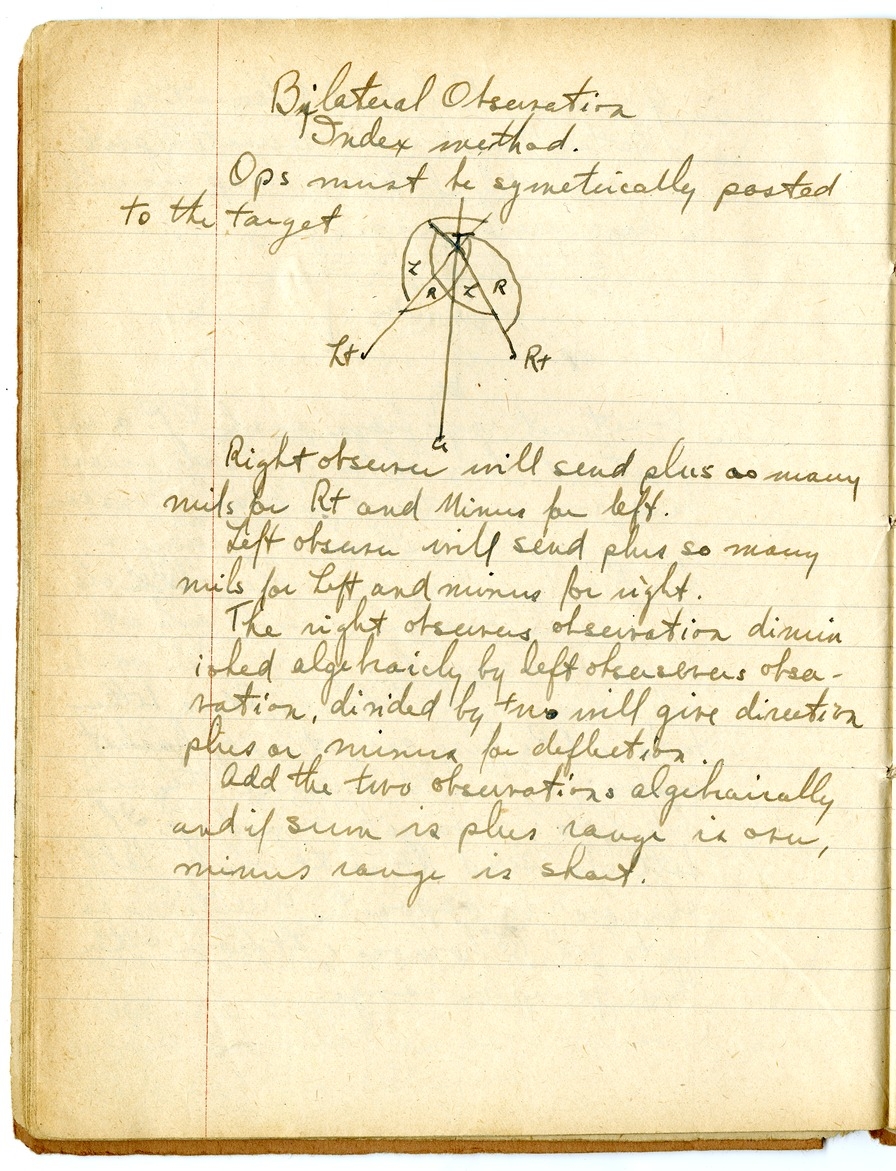 Bilateral Observation
Index method.
Ops must be symetrically posted
to the target
T
L R L R
Lt Rt
G
Right observer will send plus so many
mils for Rt and Minus for left.
Left observer will send plus so many
mils for Left and minus for right.
The right observers observation dimin
ished algebraicly by left obserservers obser-
vation, divided by two will give direction
plus or minus for deflection.
Add the two observations algebraically
and if sum is plus range is over,
minus range is short.